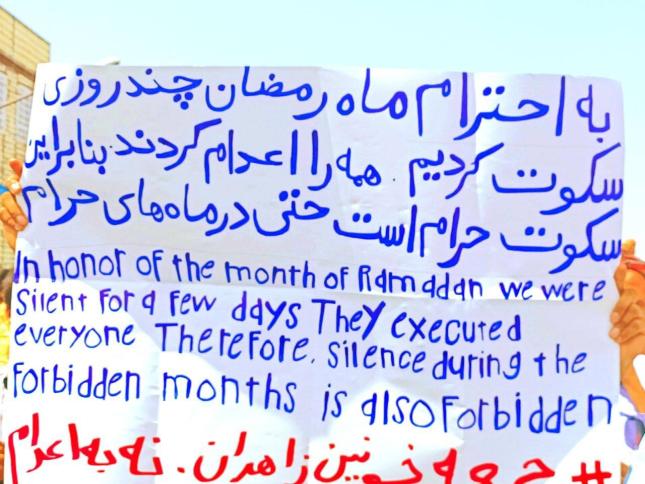 به احترام ماه رمضان چند روزی
سکوت کردیم. همه را اعدام کردند. بنابراین
سکوت حرام است حتی در ماه‌های حرام
In honor of the month of Ramadan we were
Silent for a few days They executed
everyone Therefore, silence during the
forbidden months is also forbidden
# جمعه خونین زاهدان. نه به اعدام